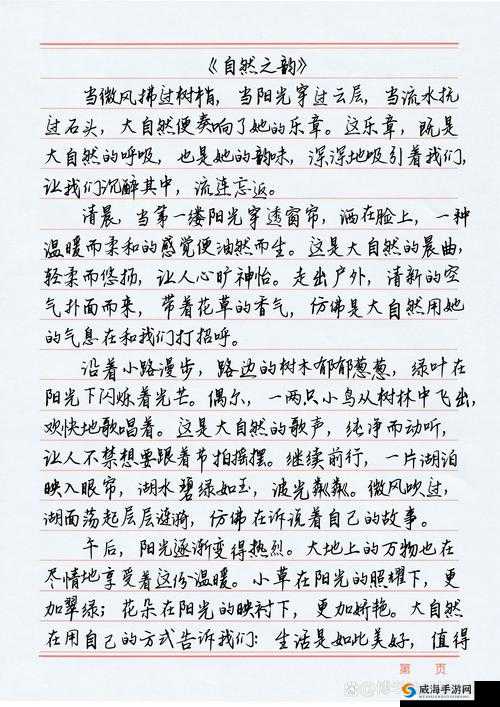 《自然之韵》
当微风拂过树梢，当阳光穿过云层，当流水抚
过石头，大自然便奏响了她的乐章。这乐章，既是
大自然的呼吸，也是她的韵味，深深地吸引着我们，
让我们沉醉其中，流连忘返。
清晨，当第一缕阳光穿透窗帘，洒在脸上，一种
温暖而柔和的感觉便油然而生。这是大自然的晨曲，
轻柔而悠扬，让人心旷神怡。走出户外，清新的空
气扑面而来，带着花草的香气，仿佛是大自然用她
的气息在和我们打招呼。
沿着小路漫步，路边的树木郁郁葱葱，绿叶在
阳光下闪烁着光芒。偶尔，一两只小鸟从树林中飞出，
欢快地歌唱着。这是大自然的歌声，纯净而动听，
让人不禁想要跟着节拍摇摆。继续前行，一片湖泊
映入眼帘，湖水碧绿如玉，波光粼粼。微风吹过，
湖面荡起层层涟漪，仿佛在诉说着自己的故事。
午后，阳光逐渐变得热烈。大地上的万物也在
尽情地享受着这份温暖。小草在阳光的照耀下，更
加翠绿；花朵在阳光的映衬下，更加娇艳。大自然
在用自己的方式告诉我们：生活是如此美好，值得
第 页
威海手游网